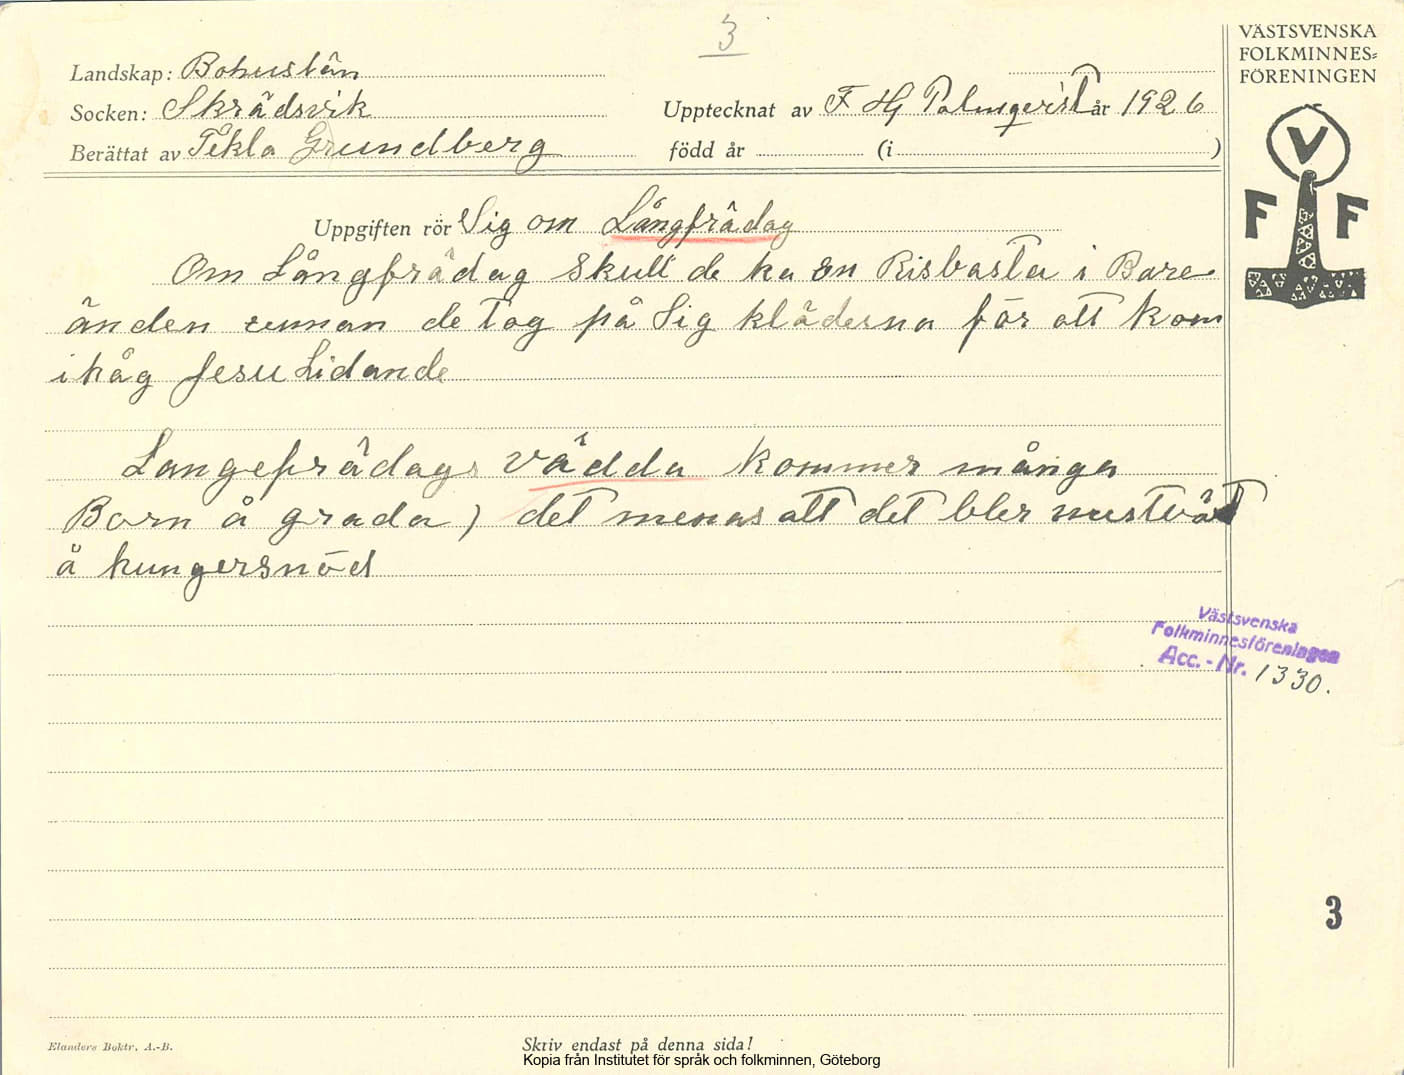 3
VÄSTSVENSKA
FOLKMINNES=
FÖRENINGEN
Landskap: Bohuslän
Socken: Skrädsvik
Upptecknat av F Hj Palmqvist år 1926
Berättat av Tekla Grundberg
född år (i )
V
F F
Uppgiften rör Sig om Långfrådag
Om Långfrådag skull de ha en Risbasta i Bare
änden innan de tog på Sig kläderna för att kom
ihåg Jesu Lidande
Langefrådags vädda kommer många
Barn å gråda) det menas att det bler
å hungersnöd
Västsvenska
Folkminnesföreningen
Acc.-Nr. 1330.
3
Elanders Boktr. A.-B.
Skriv endast på denna sida!
Kopia från Institutet för språk och folkminnen, Göteborg